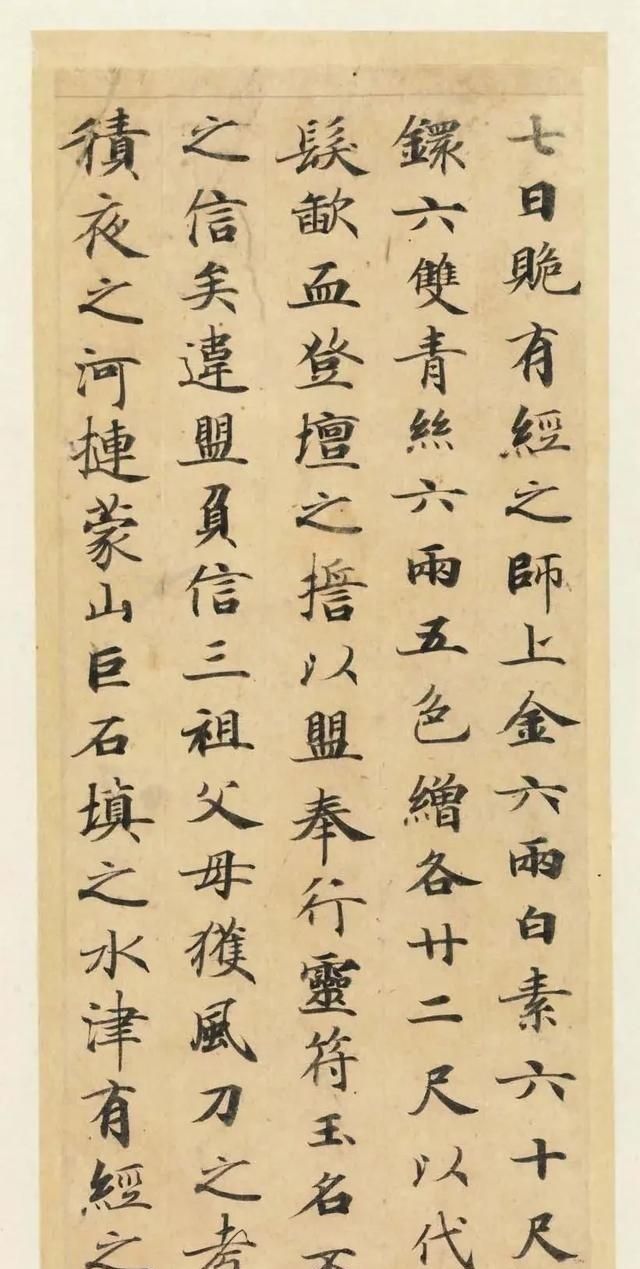 七日有經之師上金六兩白素六十尺
鐶六雙青絲六兩五色繒各廿二尺以代
髮歃血登壇之誓以盟奉行靈符玉名不
之信矣違盟負信三祖父母獲風刀之考
積夜之河摙蒙山巨石填之水津有經之